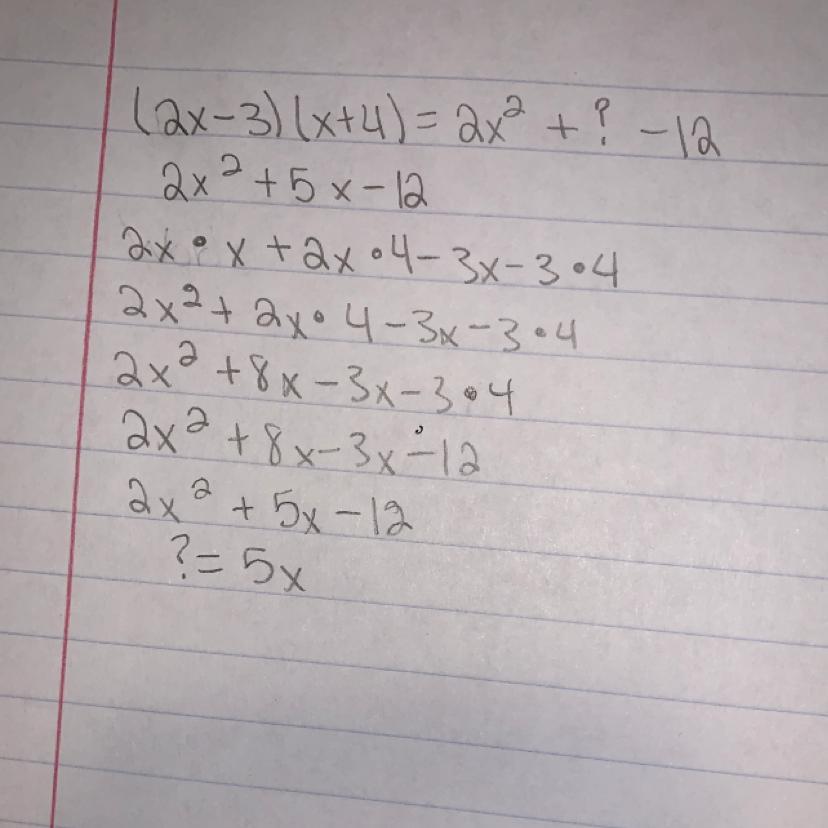 (2x-3)(x+4) = 2x² + ? -12
2x² + 5x - 12
2x • x + 2x • 4 - 3x - 3 • 4
2x² + 2x • 4 - 3x - 3 • 4
2x² + 8x - 3x - 3 • 4
2x² + 8x - 3x - 12
2x² + 5x - 12
? = 5x